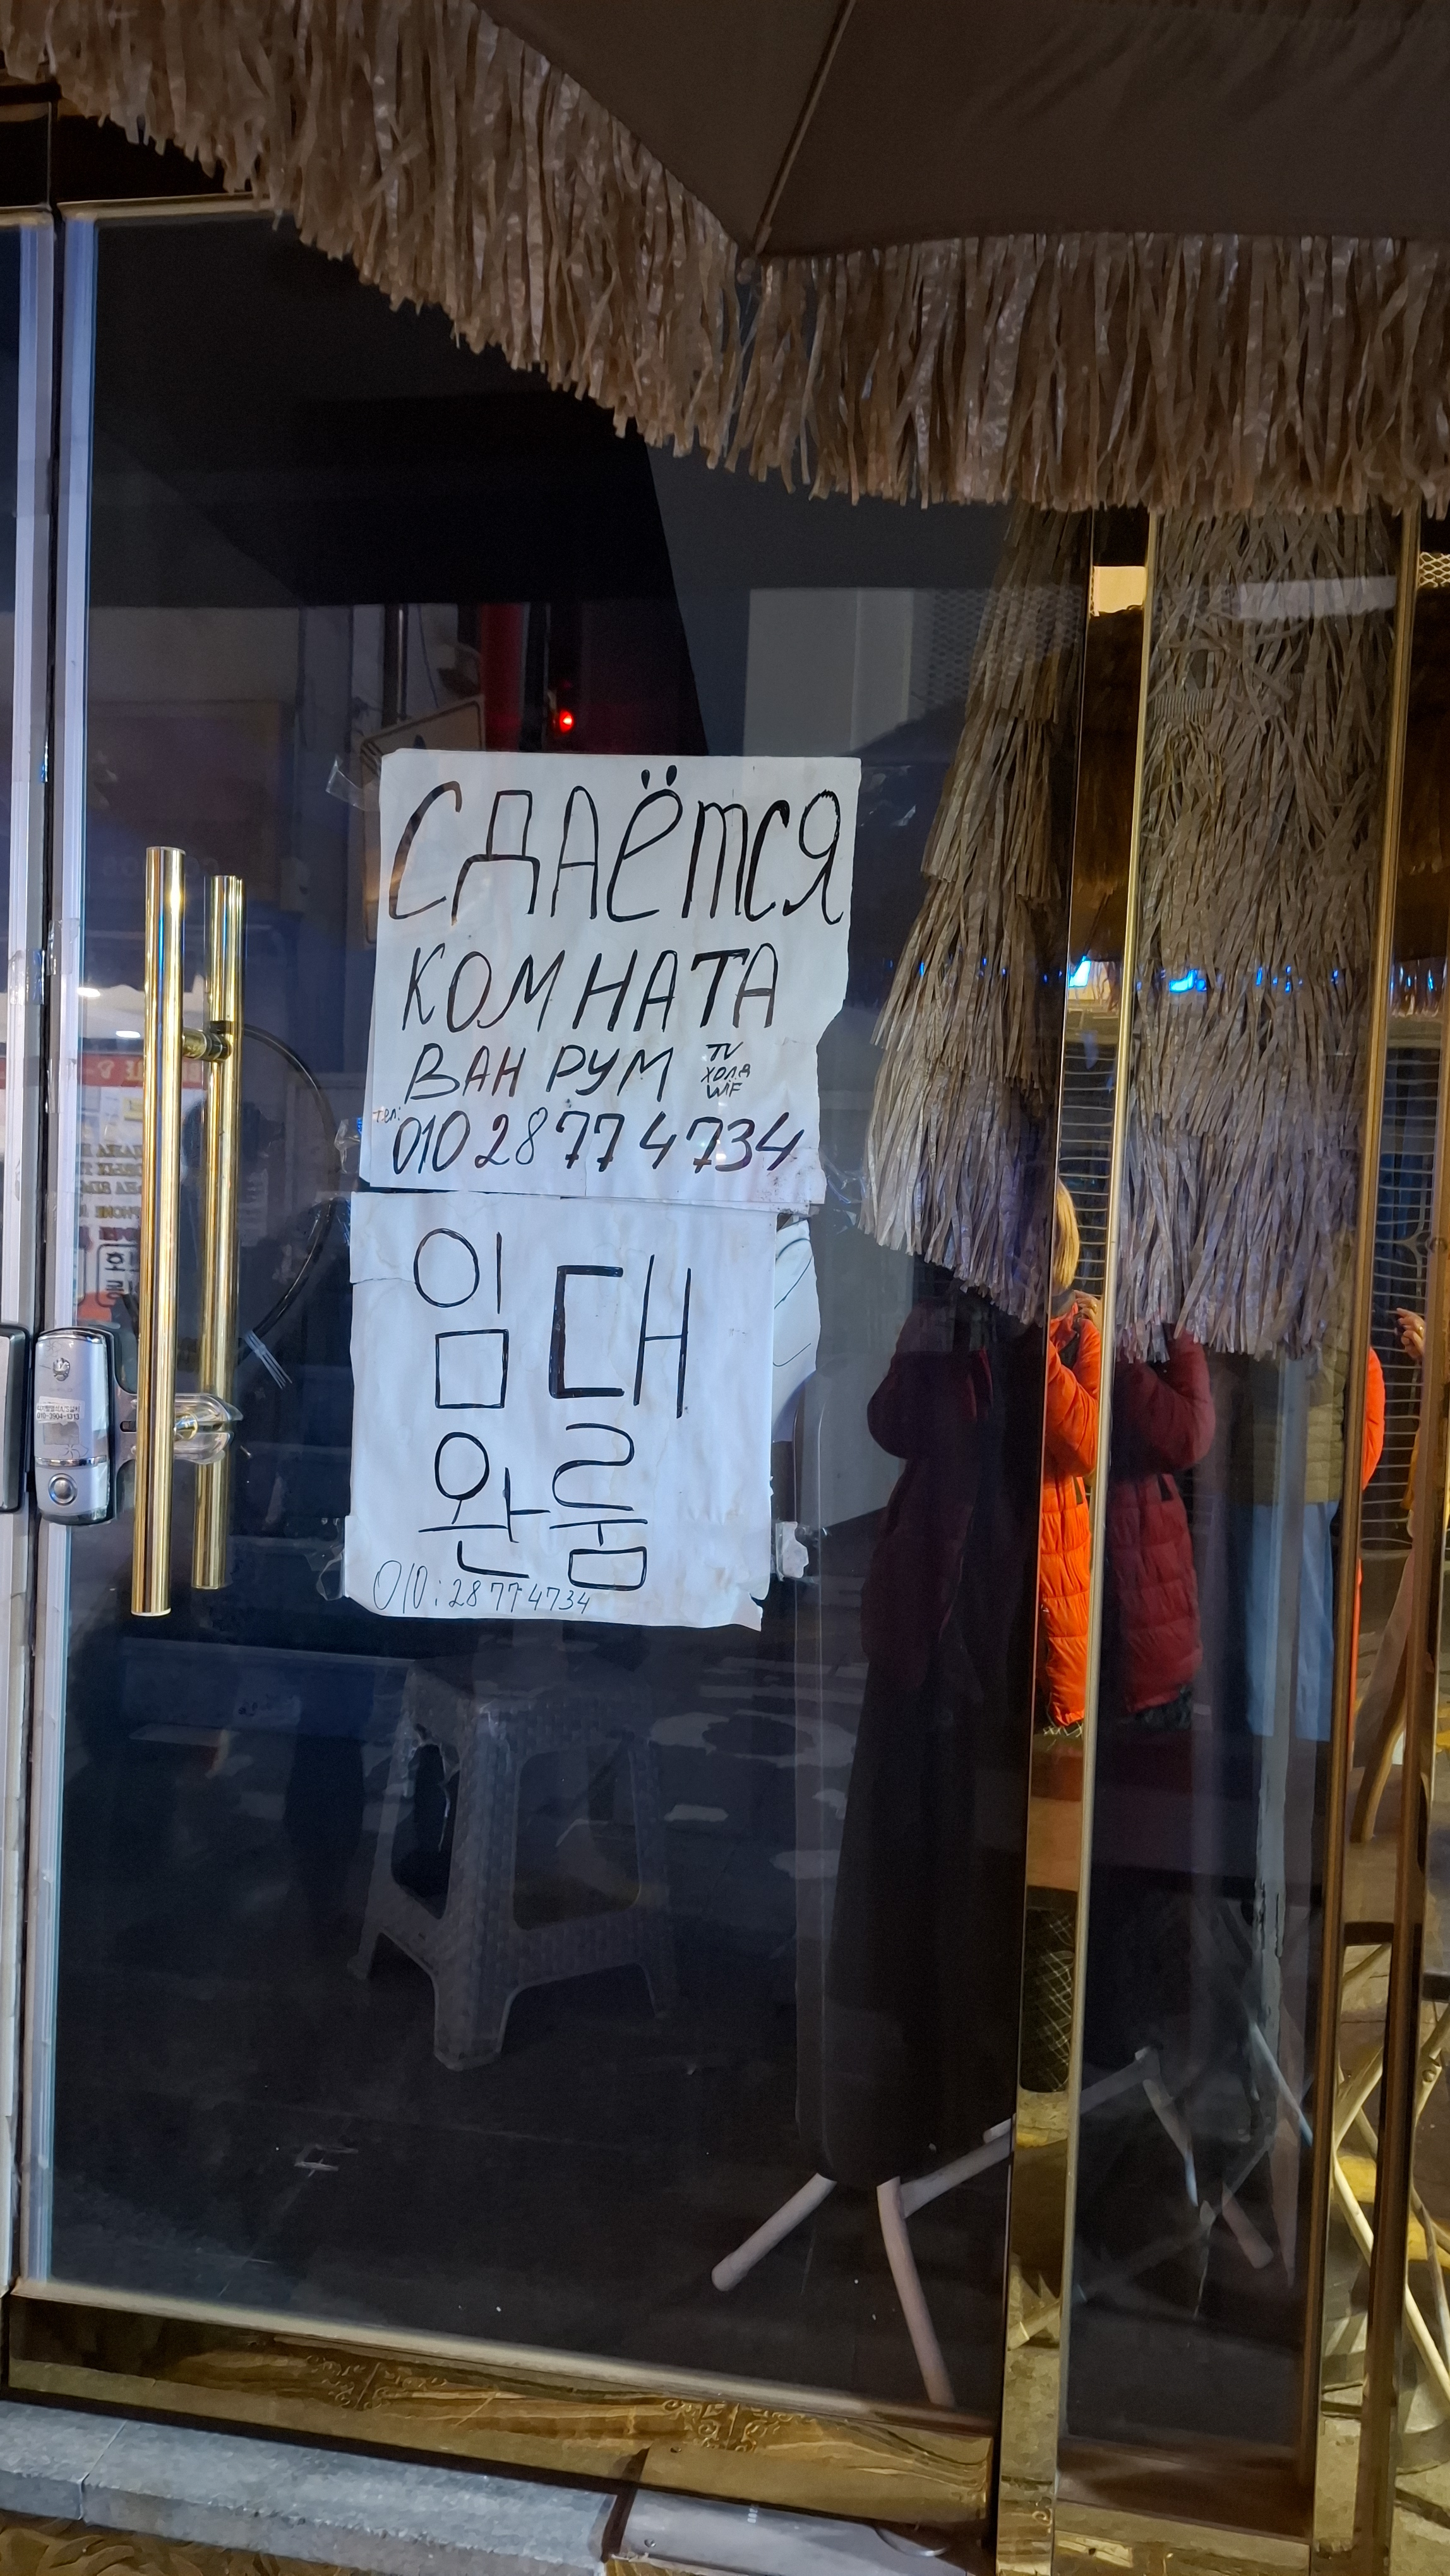 СДАЁТСЯ
КОМНАТА
ВАН РУМ
TV
ХОЛ.
WIF
тел:
010 28 77 4734
임대
완룸
010: 28 77 4734